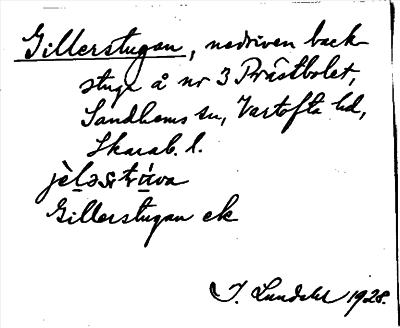 Gillerstugan, nedriven back-
stuga å nr 3 Prästbolet,
Sandhems sn, Vartofta hd,
Skarab. l.
Gillerstugan ek
J. Lundahl 1928.